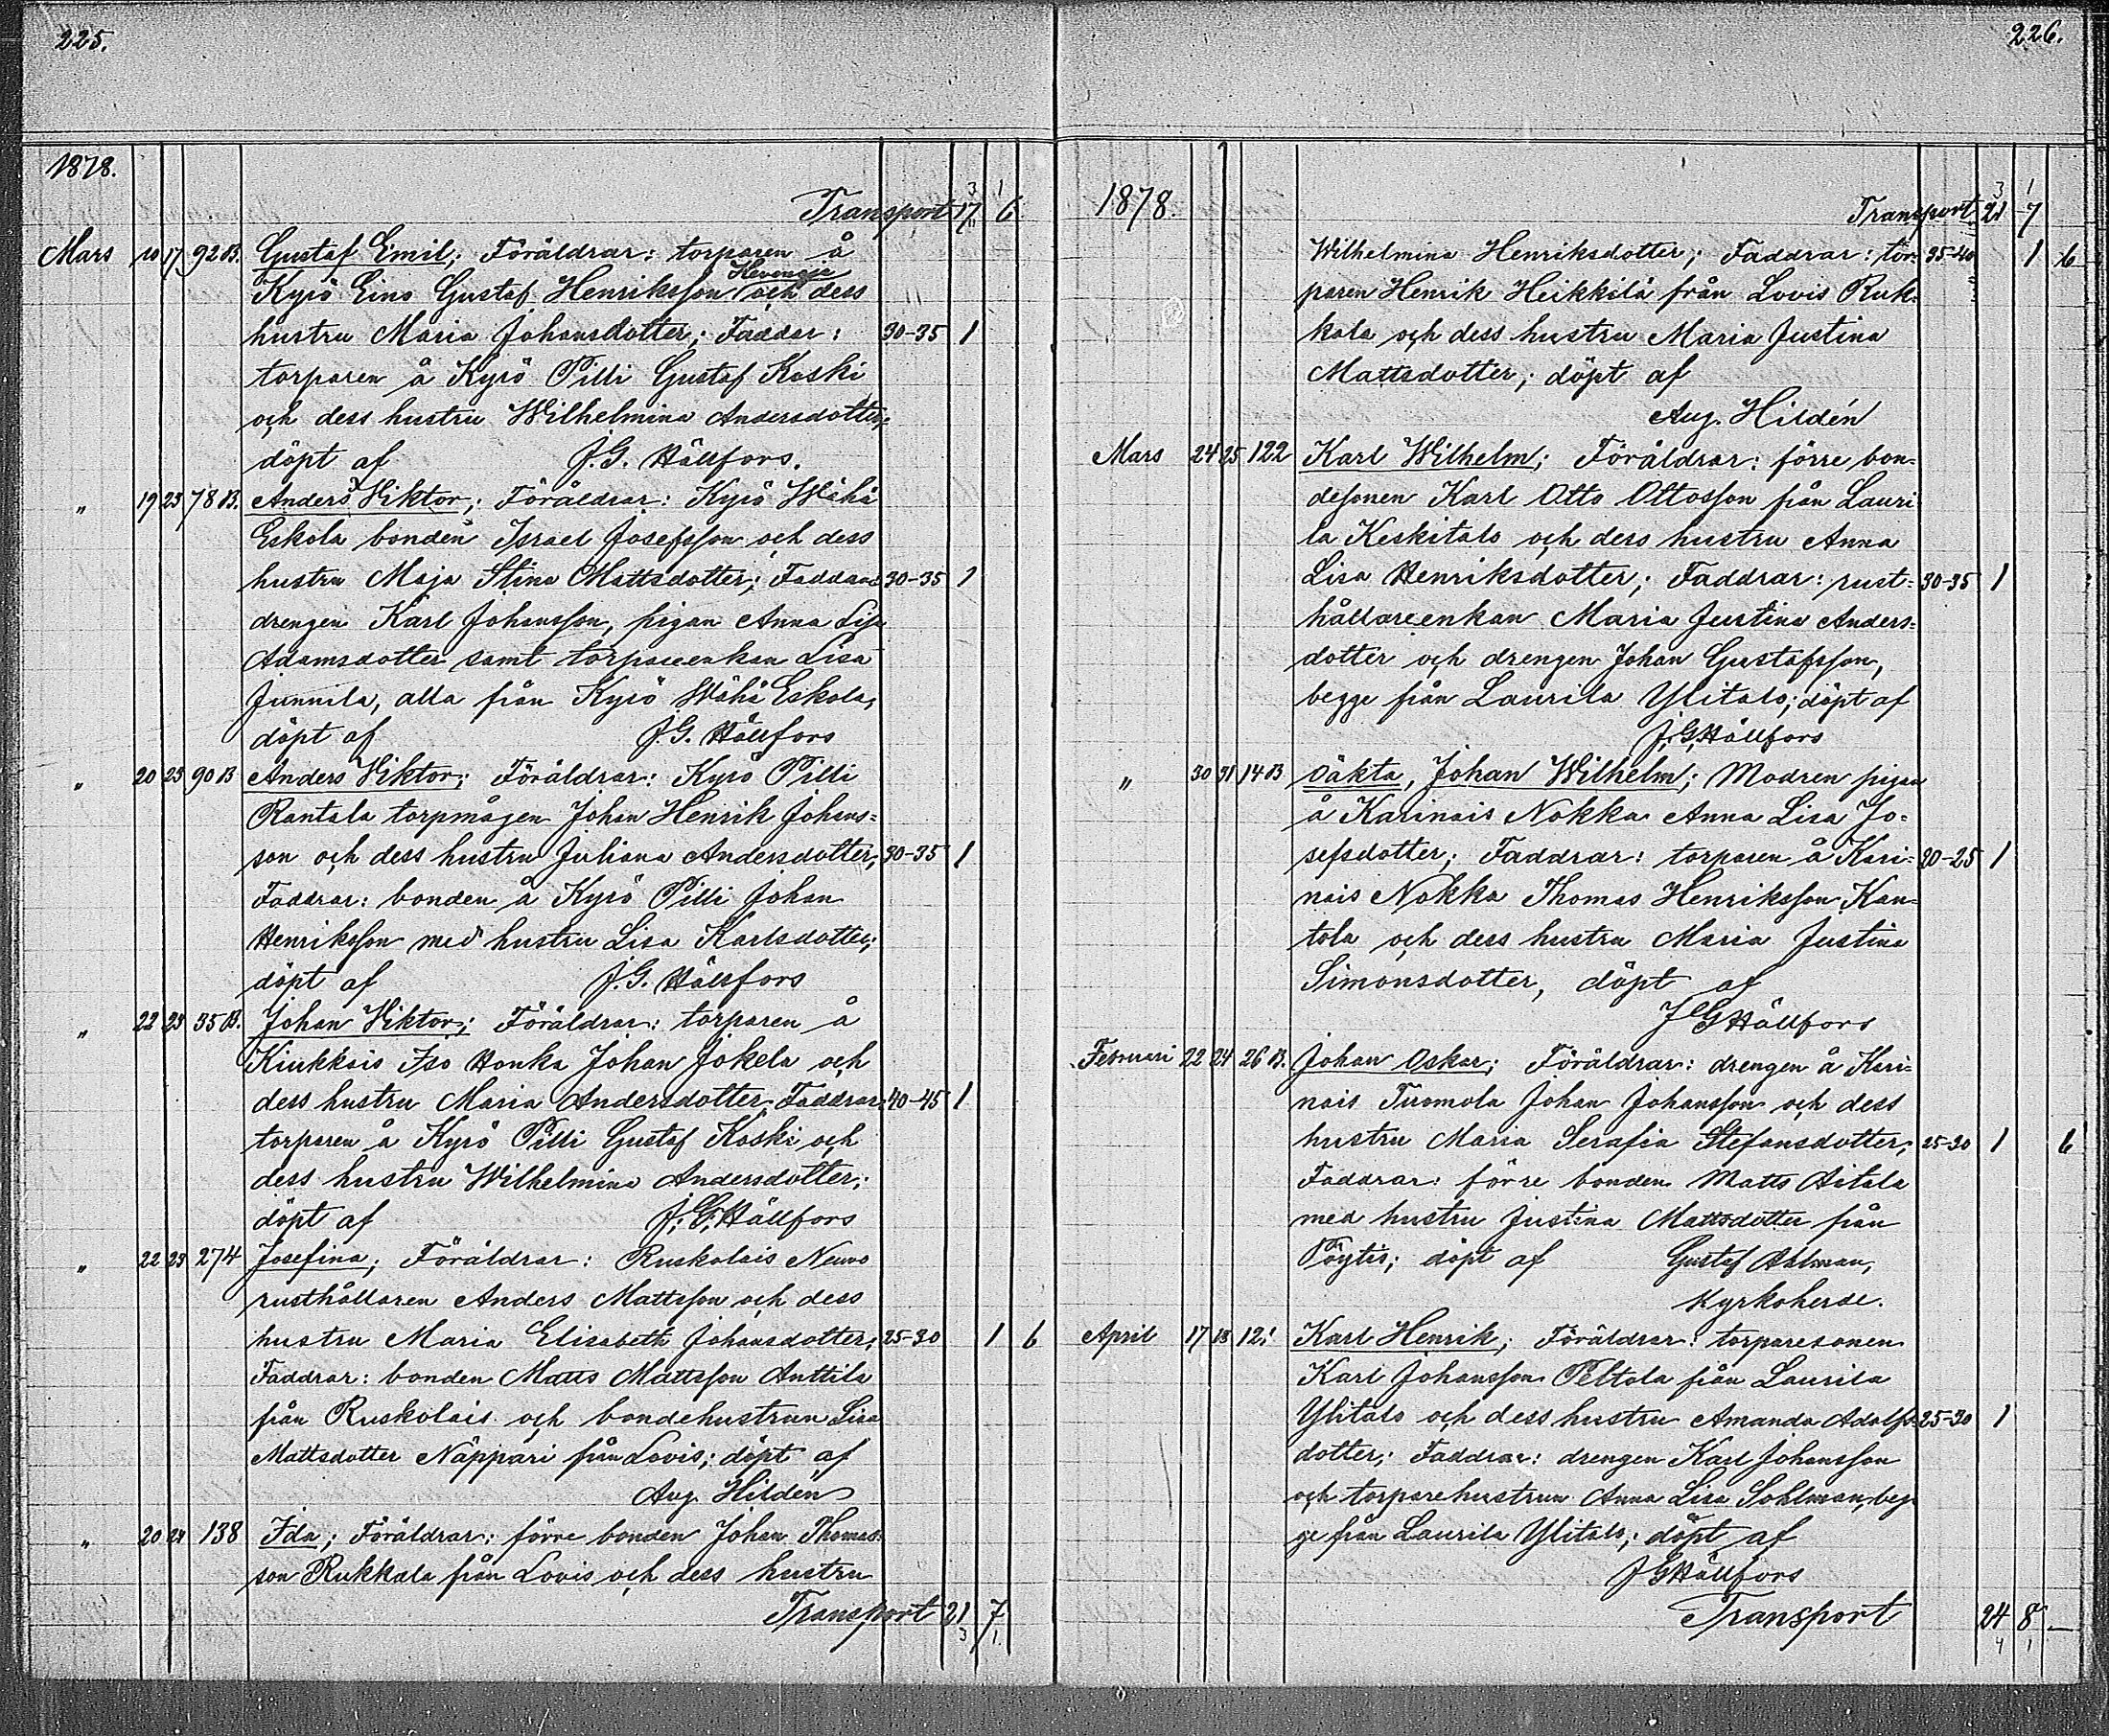 225.
1878.
Transport 17 6
3 1
Mars 10 17 92 B. Gustaf Emil; Föräldrar: torparen å
Hevonoja
Kyrö Eino Gustaf Henriksson och dess
hustru Maria Johansdotter; Faddar: 30-35 1
torparen å Kyrö Pilli Gustaf Koski
och dess hustru Wilhelmina Andersdotter;
döpt af J.G. Hällfors.
" 19 23 78 B. Anders Viktor; Föräldrar: Kyrö Wähä
Eskola bonden Israel Josefsson och dess
hustru Maja Stina Mattsdotter; Faddrar: 30-35 1
drengen Karl Johansson, pigan Anna Lisa
Adamsdotter samt torpareenkan Lisa
Junnila, alla från Kyrö Wähä Eskola,
döpt af J.G. Hällfors
" 20 23 90 B Anders Viktor; Föräldrar: Kyrö Pilli
Rantala torpmågen Johan Henrik Johans-
son och dess hustru Juliana Andersdotter; 30-35 1
Faddrar: bonden å Kyrö Pilli Johan
Henriksson med hustru Lisa Karlsdotter;
döpt af J.G. Hällfors
" 22 23 35 B. Johan Viktor; Föräldrar: torparen å
Kiukkais Iso Honka Johan Jokela och
dess hustru Maria Andersdotter; Faddrar: 40-45 1
torparen å Kyrö Pilli Gustaf Koski och
dess hustru Wilhelmina Andersdotter;
döpt af J.G. Hällfors
" 22 23 274 Josefina; Föräldrar: Ruskolais Neuvo
rusthållaren Anders Mattsson och dess
hustru Maria Elisabeth Johansdotter; 25-30 1 6
Faddrar: bonden Matts Mattsson Anttila
från Ruskolais och bondehustrun Lisa
Mattsdotter Näppari från Lovis; döpt af
Aug. Hildén
" 20 24 138 Ida; Föräldrar: förre bonden Johan Thomas-
son Rukkala från Lovis och dess hustru
Transport 21 7
3 1.
226.
1878.
3 1
Transport 21 7
Wilhelmina Henriksdotter; Faddrar: tor- 35-40 1 6
paren Henrik Heikkilä från Lovis Ruk-
kala och dess hustru Maria Justina
Mattsdotter; döpt af
Aug. Hildén
Mars 24 25 122 Karl Wilhelm; Föräldrar: förre bon-
desonen Karl Otto Ottosson från Lauri-
la Keskitalo och dess hustru Anna
Lisa Henriksdotter; Faddrar: rust- 30-35 1
hållareenkan Maria Justina Anders-
dotter och drengen Johan Gustafsson,
begge från Laurila Ylitalo; döpt af
J.G. Hällfors
" 30 31 14 B oäkta, Johan Wilhelm; Modren pigan
å Karinais Nokka Anna Lisa Jo-
sefsdotter; Faddrar: torparen å Kari- 20-25 1
nais Nokka Thomas Henriksson Kan-
tola och dess hustru Maria Justina
Simonsdotter, döpt af
J G Hällfors
Februari 22 24 26 B. Johan Oskar; Föräldrar: drengen å Kari-
nais Tuomola Johan Johansson och dess
hustru Maria Serafia Stefansdotter; 25-30 1 6
Faddrar: förre bonden Matts Aitala
med hustru Justina Mattsdotter från
Pöytis; döpt af Gustaf Ahlman,
Kyrkoherde.
April 17 18 121 Karl Henrik; Föräldrar: torparesonen
Karl Johansson Peltola från Laurila
Ylitalo och dess hustru Amanda Adolfs- 25-30 1
dotter; Faddrar: drengen Karl Johansson
och torparehustrun Anna Lisa Sohlman, beg-
ge från Laurila Ylitalo; döpt af
J G Hällfors
Transport 24 8 —
4 1